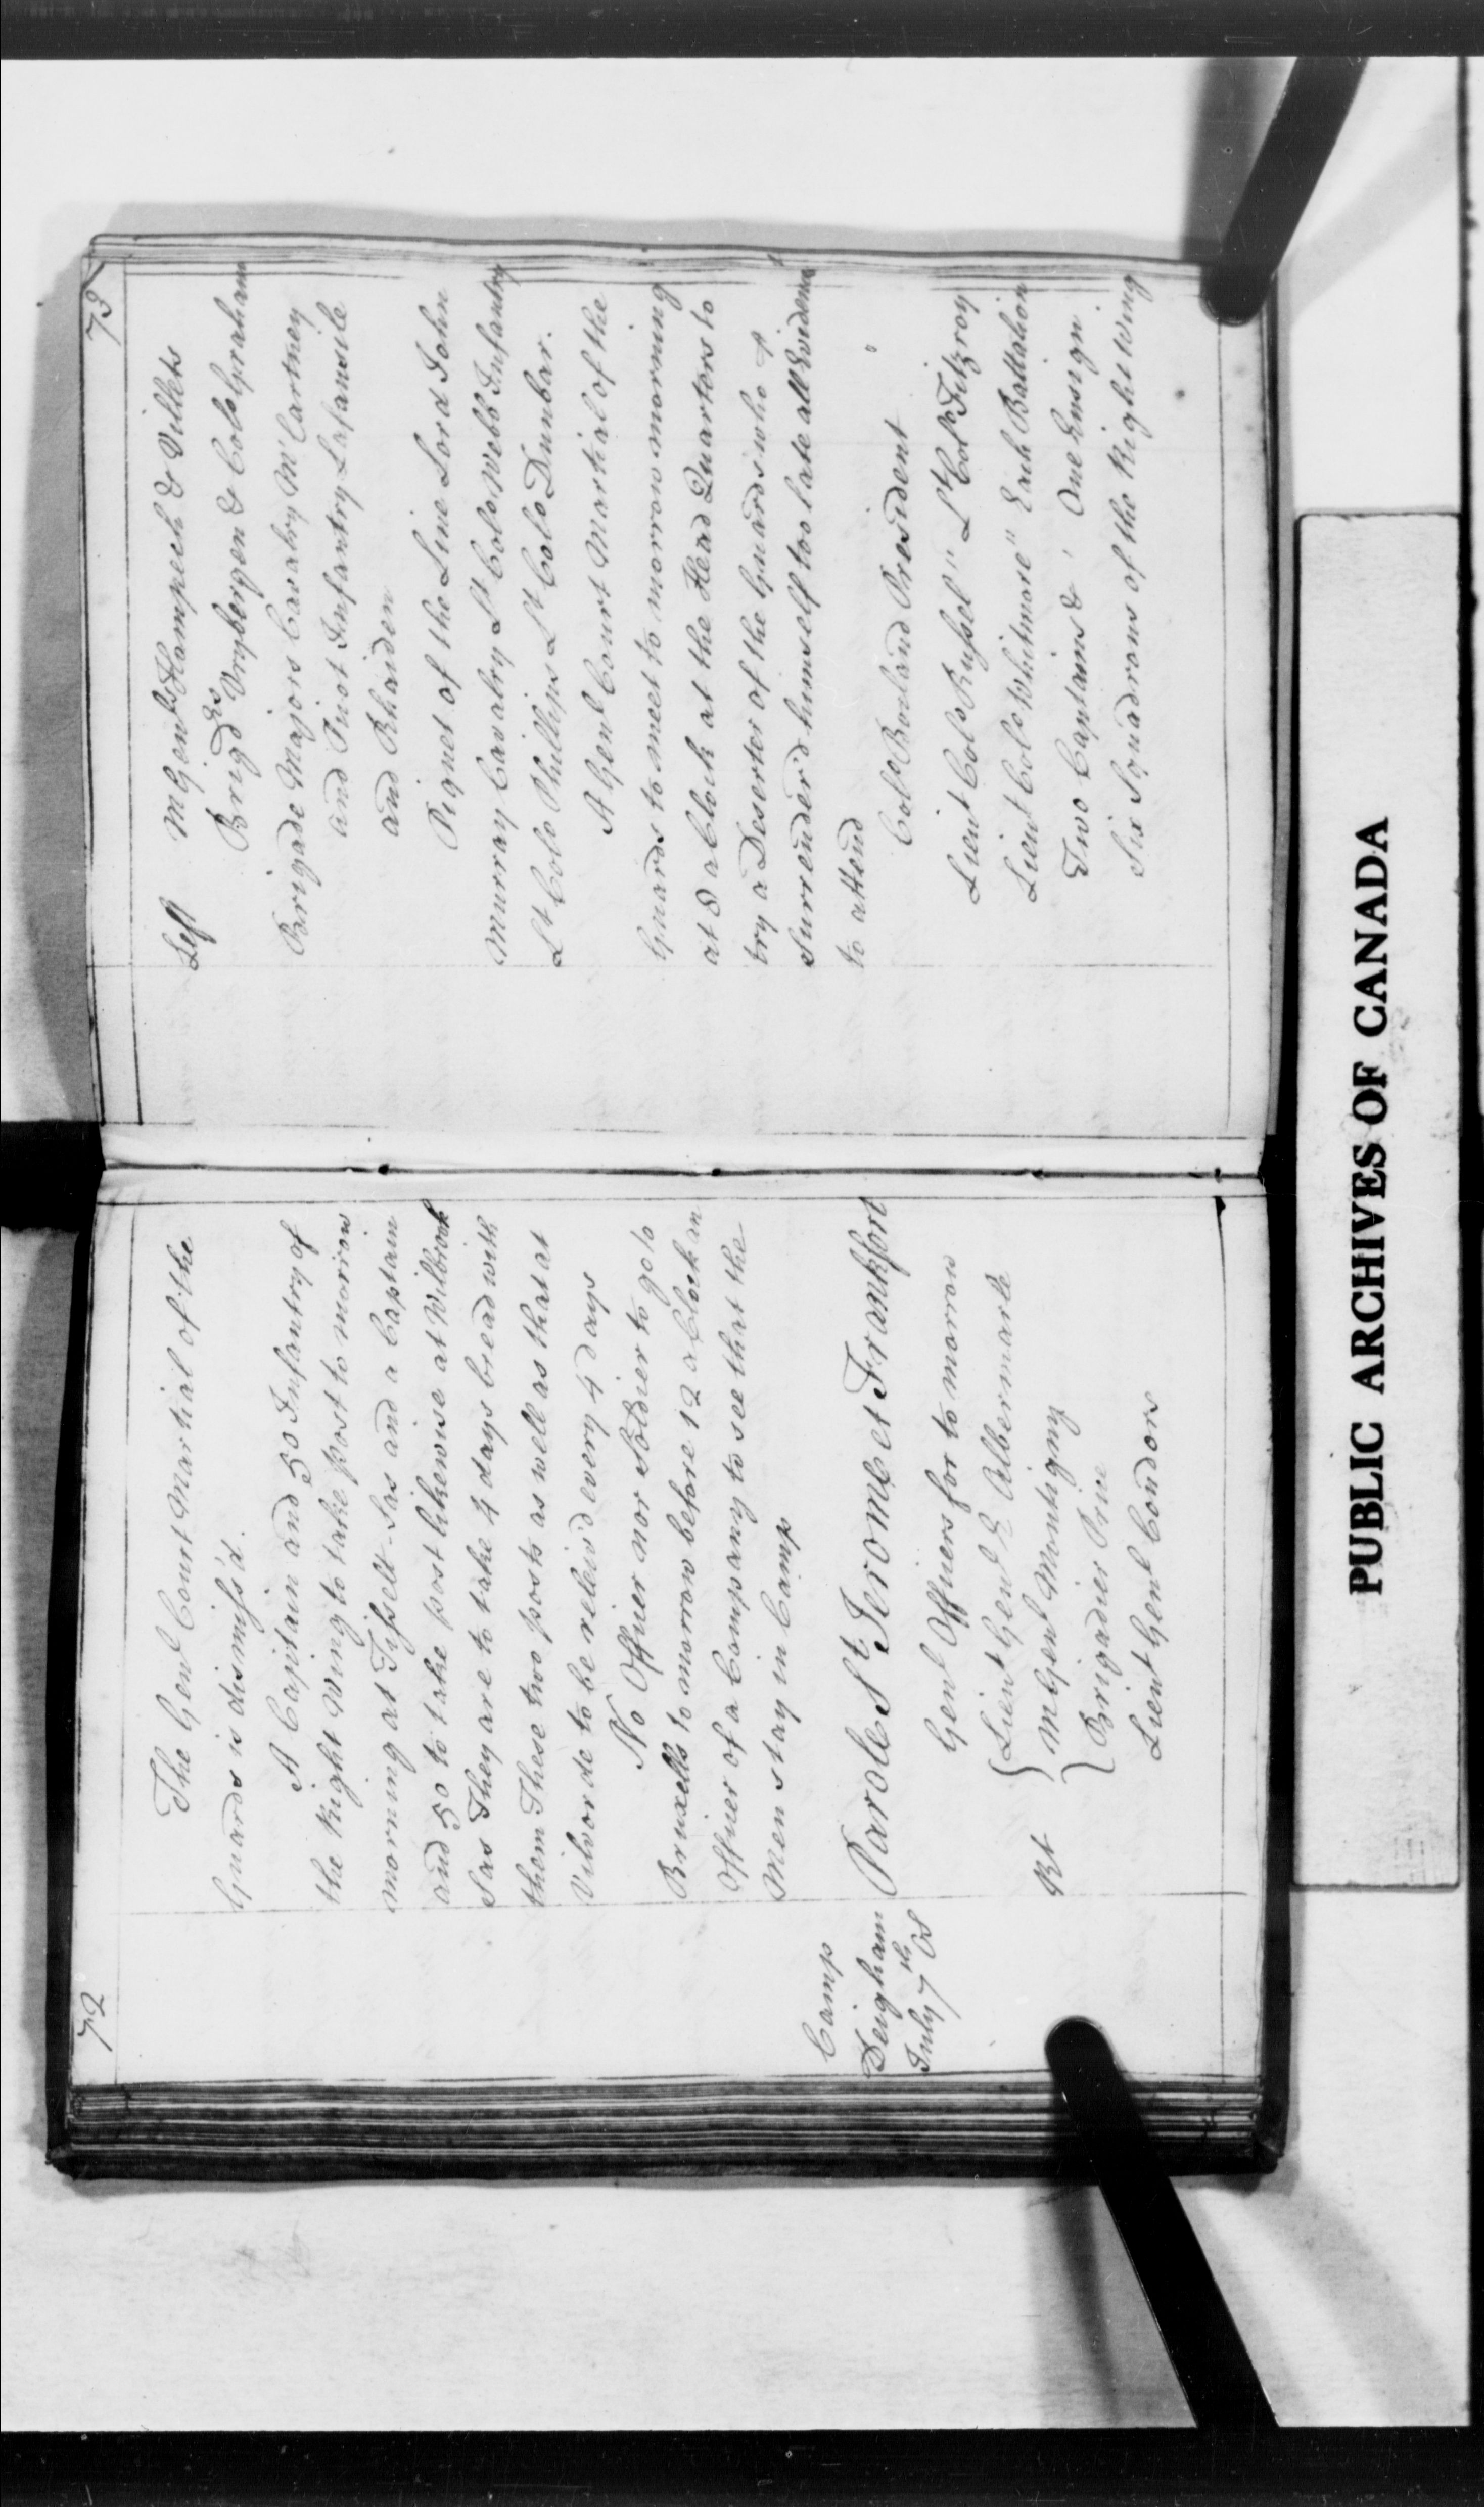 72
The Genl Court Martial of the
Guards is dismiss'd.
A Captain and 50 Infantry of
the Right Wing to take post to morrow
morning at Tisselt-Sas and a Captain
and 50 to take post likewise at Wilbrook
Sas They are to take 4 days bread with
them These two posts as well as that at
Vilvorde to be reliev'd every 4 days
No Officer nor Soldier to go to
Bruxells to morrow before 12 a Clock an
Officer of a Company to see that the
Men stay in Camp
Camp
Deigham
July 7th OS
Parole St Jerome et Frankfort
Genl Officers for to morrow
Lieut Genl E Albermarle
Rt M Genl Montigny
Brigadier Price
Lieut Genl Coudors
73
Left M Genls Hompech & Villets
Brigdrs Vrybergen & Colo Graham
Brigade Majors Cavalry McCartney
and Puot Infantry Lafansile
and Rhaiden
Piquet of the Line Lord John
Murray Cavalry Lt Colo Webb Infantry
Lt Colo Phillips Lt Colo Dunbar.
A Genl Court Martial of the
Guards to meet to morrow morning
at 8 a Clock at the Head Quarters to
try a Deserter of the Guards who
Surrender'd himself too late all Evidence
to attend
Colo Boiland President
Lieut Colo Russel " Lt Colo Fitzroy
Lieut Colo Whitmore " Each Battalion
Two Captains & One Ensign.
Six Squadrons of the Right Wing
PUBLIC ARCHIVES OF CANADA